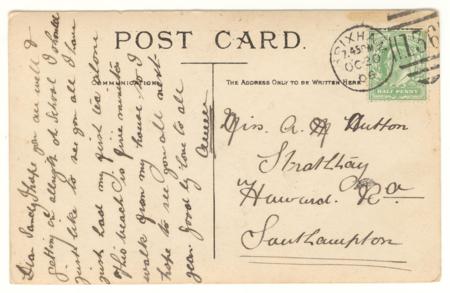 POST CARD.
COMMUNICATIONS
THE ADDRESS ONLY TO BE WRITTEN HERE
BRIXHAM
7.45PM
OC 20
06
HALF PENNY
Dear Sandy I hope you are well &
getting on allright at School I should
just like to see you all I have
just had my first tea alone
This beach is five minutes
walk from my house, & I
hope to see you all next
year. Good bye love to all
Miss. A. Hutton
Strathtay
Howard Rd
Southampton